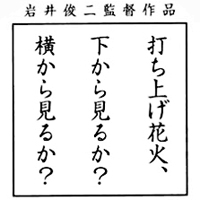 岩井俊二監督作品
打ち上げ花火、
下から見るか？
横から見るか？